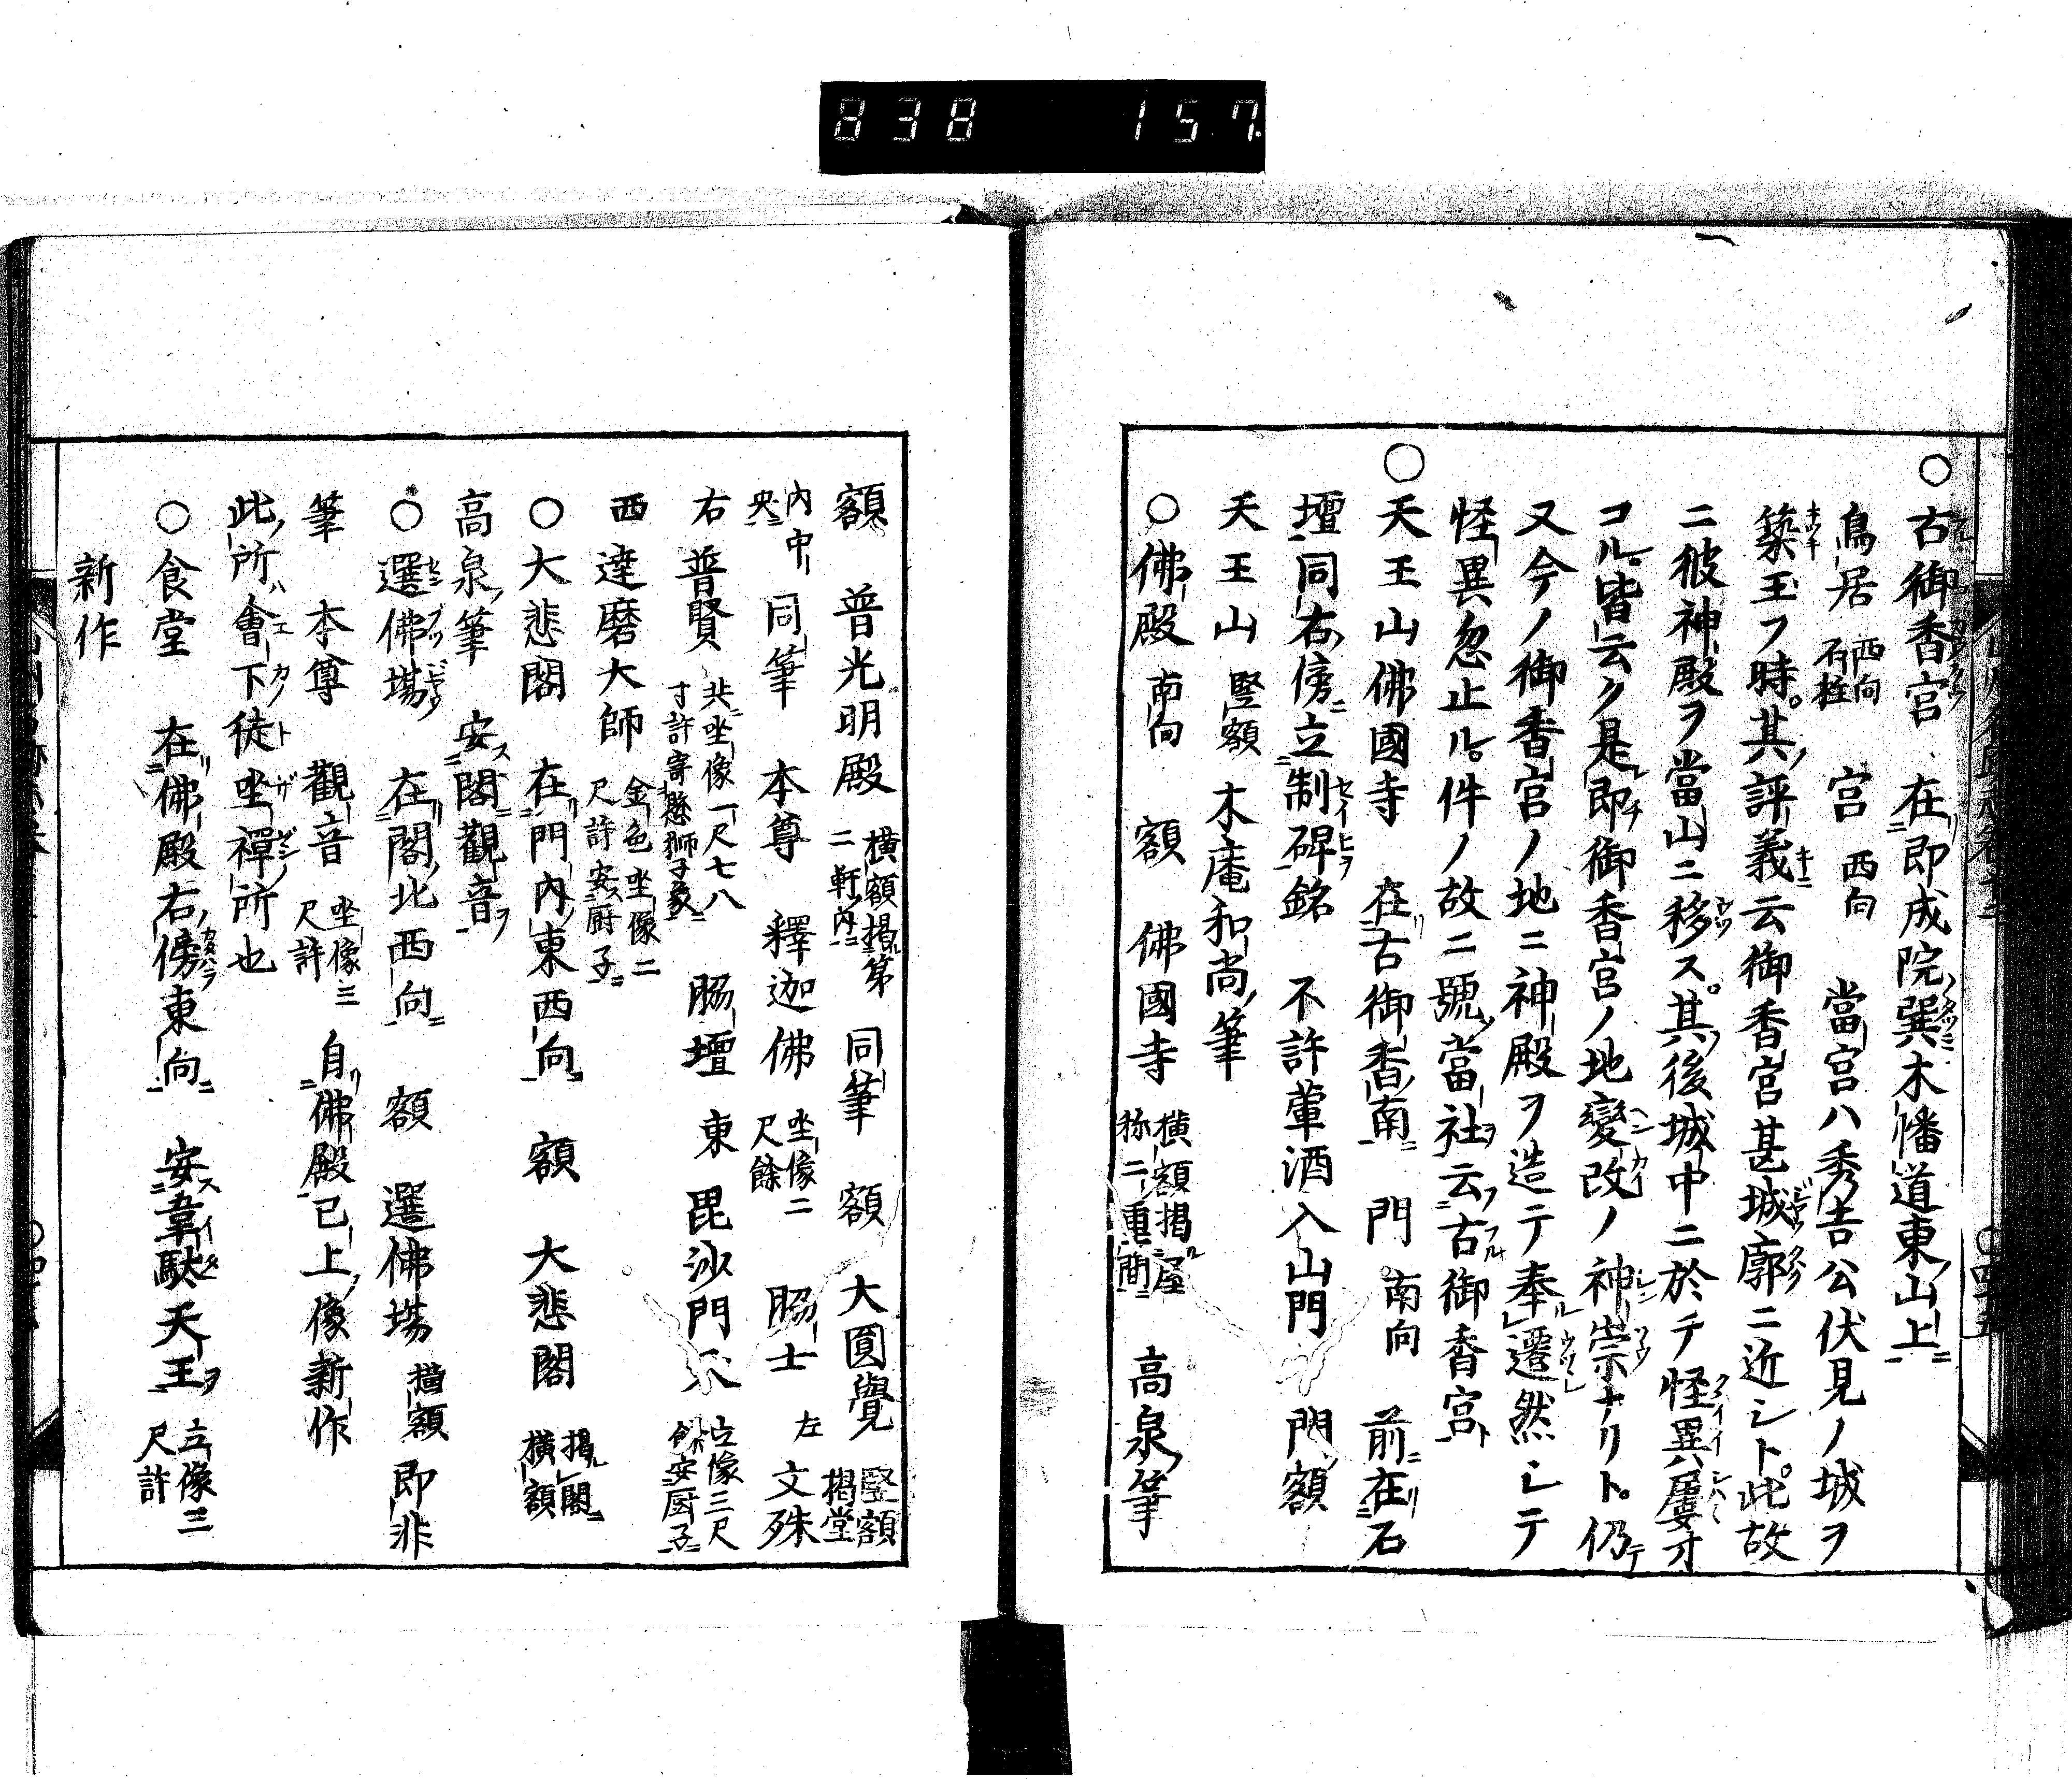 838 157
○古御香宮 在即成院巽木幡道東山上
鳥居 西向石柱 宮 西向 當宮ハ秀吉公伏見ノ城ヲ
築玉フ時。其評義云御香宮甚城廓ニ近シト。此故
ニ彼神殿ヲ當山ニ移ス。其後城中ニ於テ怪異屢オ
コル。皆云ク是即御香宮ノ地變改ノ神崇ナリト。仍テ
又今ノ御香宮ノ地ニ神殿ヲ造テ奉遷然シテ
怪異忽止ル。件ノ故ニ號當社云古御香宮
○天王山佛國寺 在古御香南 門 南向 前在石
壇同右傍立制碑銘 不許葷酒入山門 門額
天王山 竪額 木庵和尚筆
○佛殿 南向 額 佛國寺 横額掲屋祢二重間 高泉筆
額 普光明殿 横額掲第二軒内 同筆 額 大圓覺 竪額掲堂
内中央 同筆 本尊 釋迦佛 坐像二尺餘 脇士 左 文殊
右 普賢 共坐像一尺七八寸許寄懸獅子象 脇壇 東 毘沙門天 立像三尺餘安厨子
西 達磨大師 金色坐像二尺許安厨子
○大悲閣 在門内東西向 額 大悲閣 掲閣横額
高泉筆 安閣觀音
○選佛場 在閣北西向 額 選佛場 横額 即非
筆 本尊 觀音 坐像三尺許 自佛殿已上像新作
此所會下徒坐禪所也
○食堂 在佛殿右傍東向 安韋駄天王 立像三尺許
新作